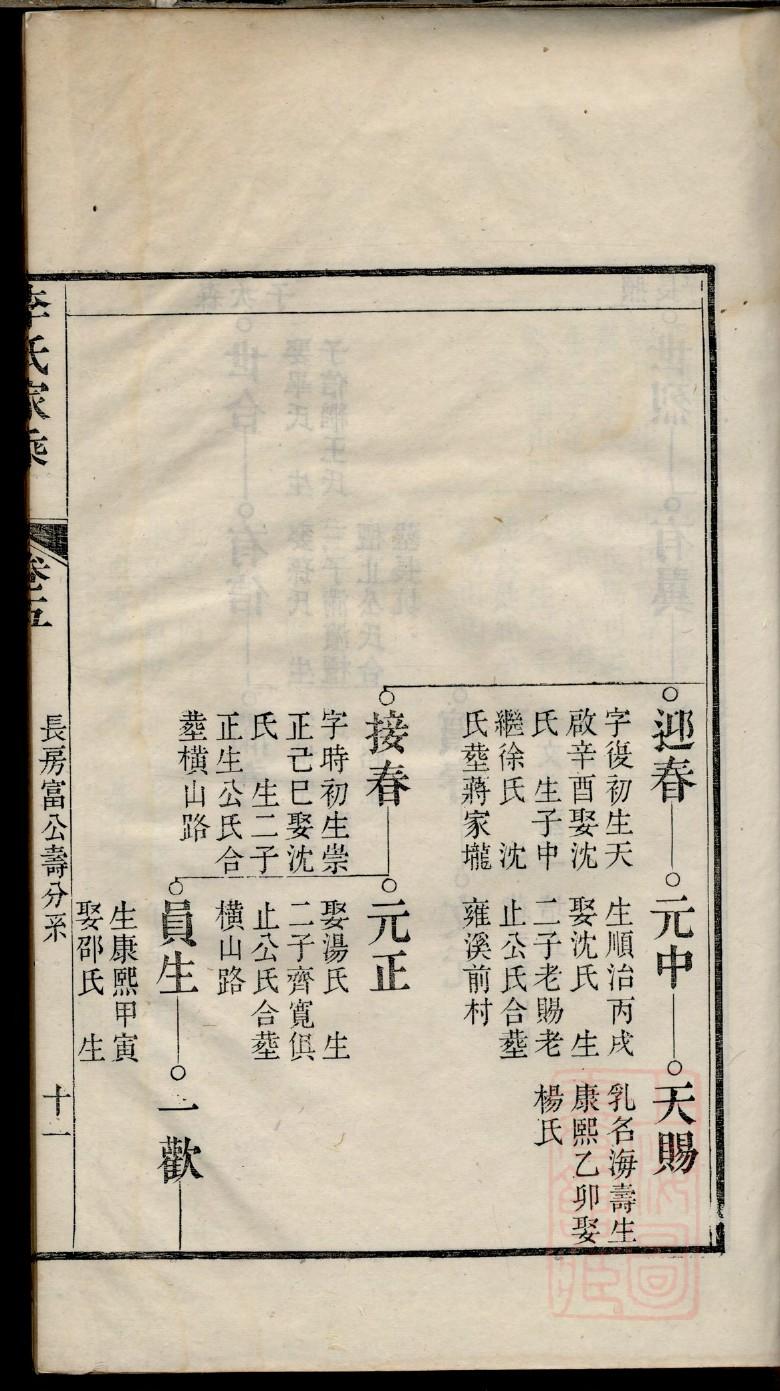 迎春
字復初生天
啟辛酉娶沈
氏　生子中
繼徐氏　沈
氏塟蔣家壠
元中
生順治丙戌
娶沈氏　生
二子老賜老
止公氏合塟
雍溪前村
天賜
乳名海壽生
康熙乙卯娶
楊氏
接春
字時初生崇
正己巳娶沈
氏　生二子
正生公氏合
塟橫山路
元正
娶湯氏　生
二子齊寬俱
止公氏合塟
橫山路
員生
生康熙甲寅
娶邵氏　生
一歡
李氏家乘
卷五
長房富公壽分系
十一